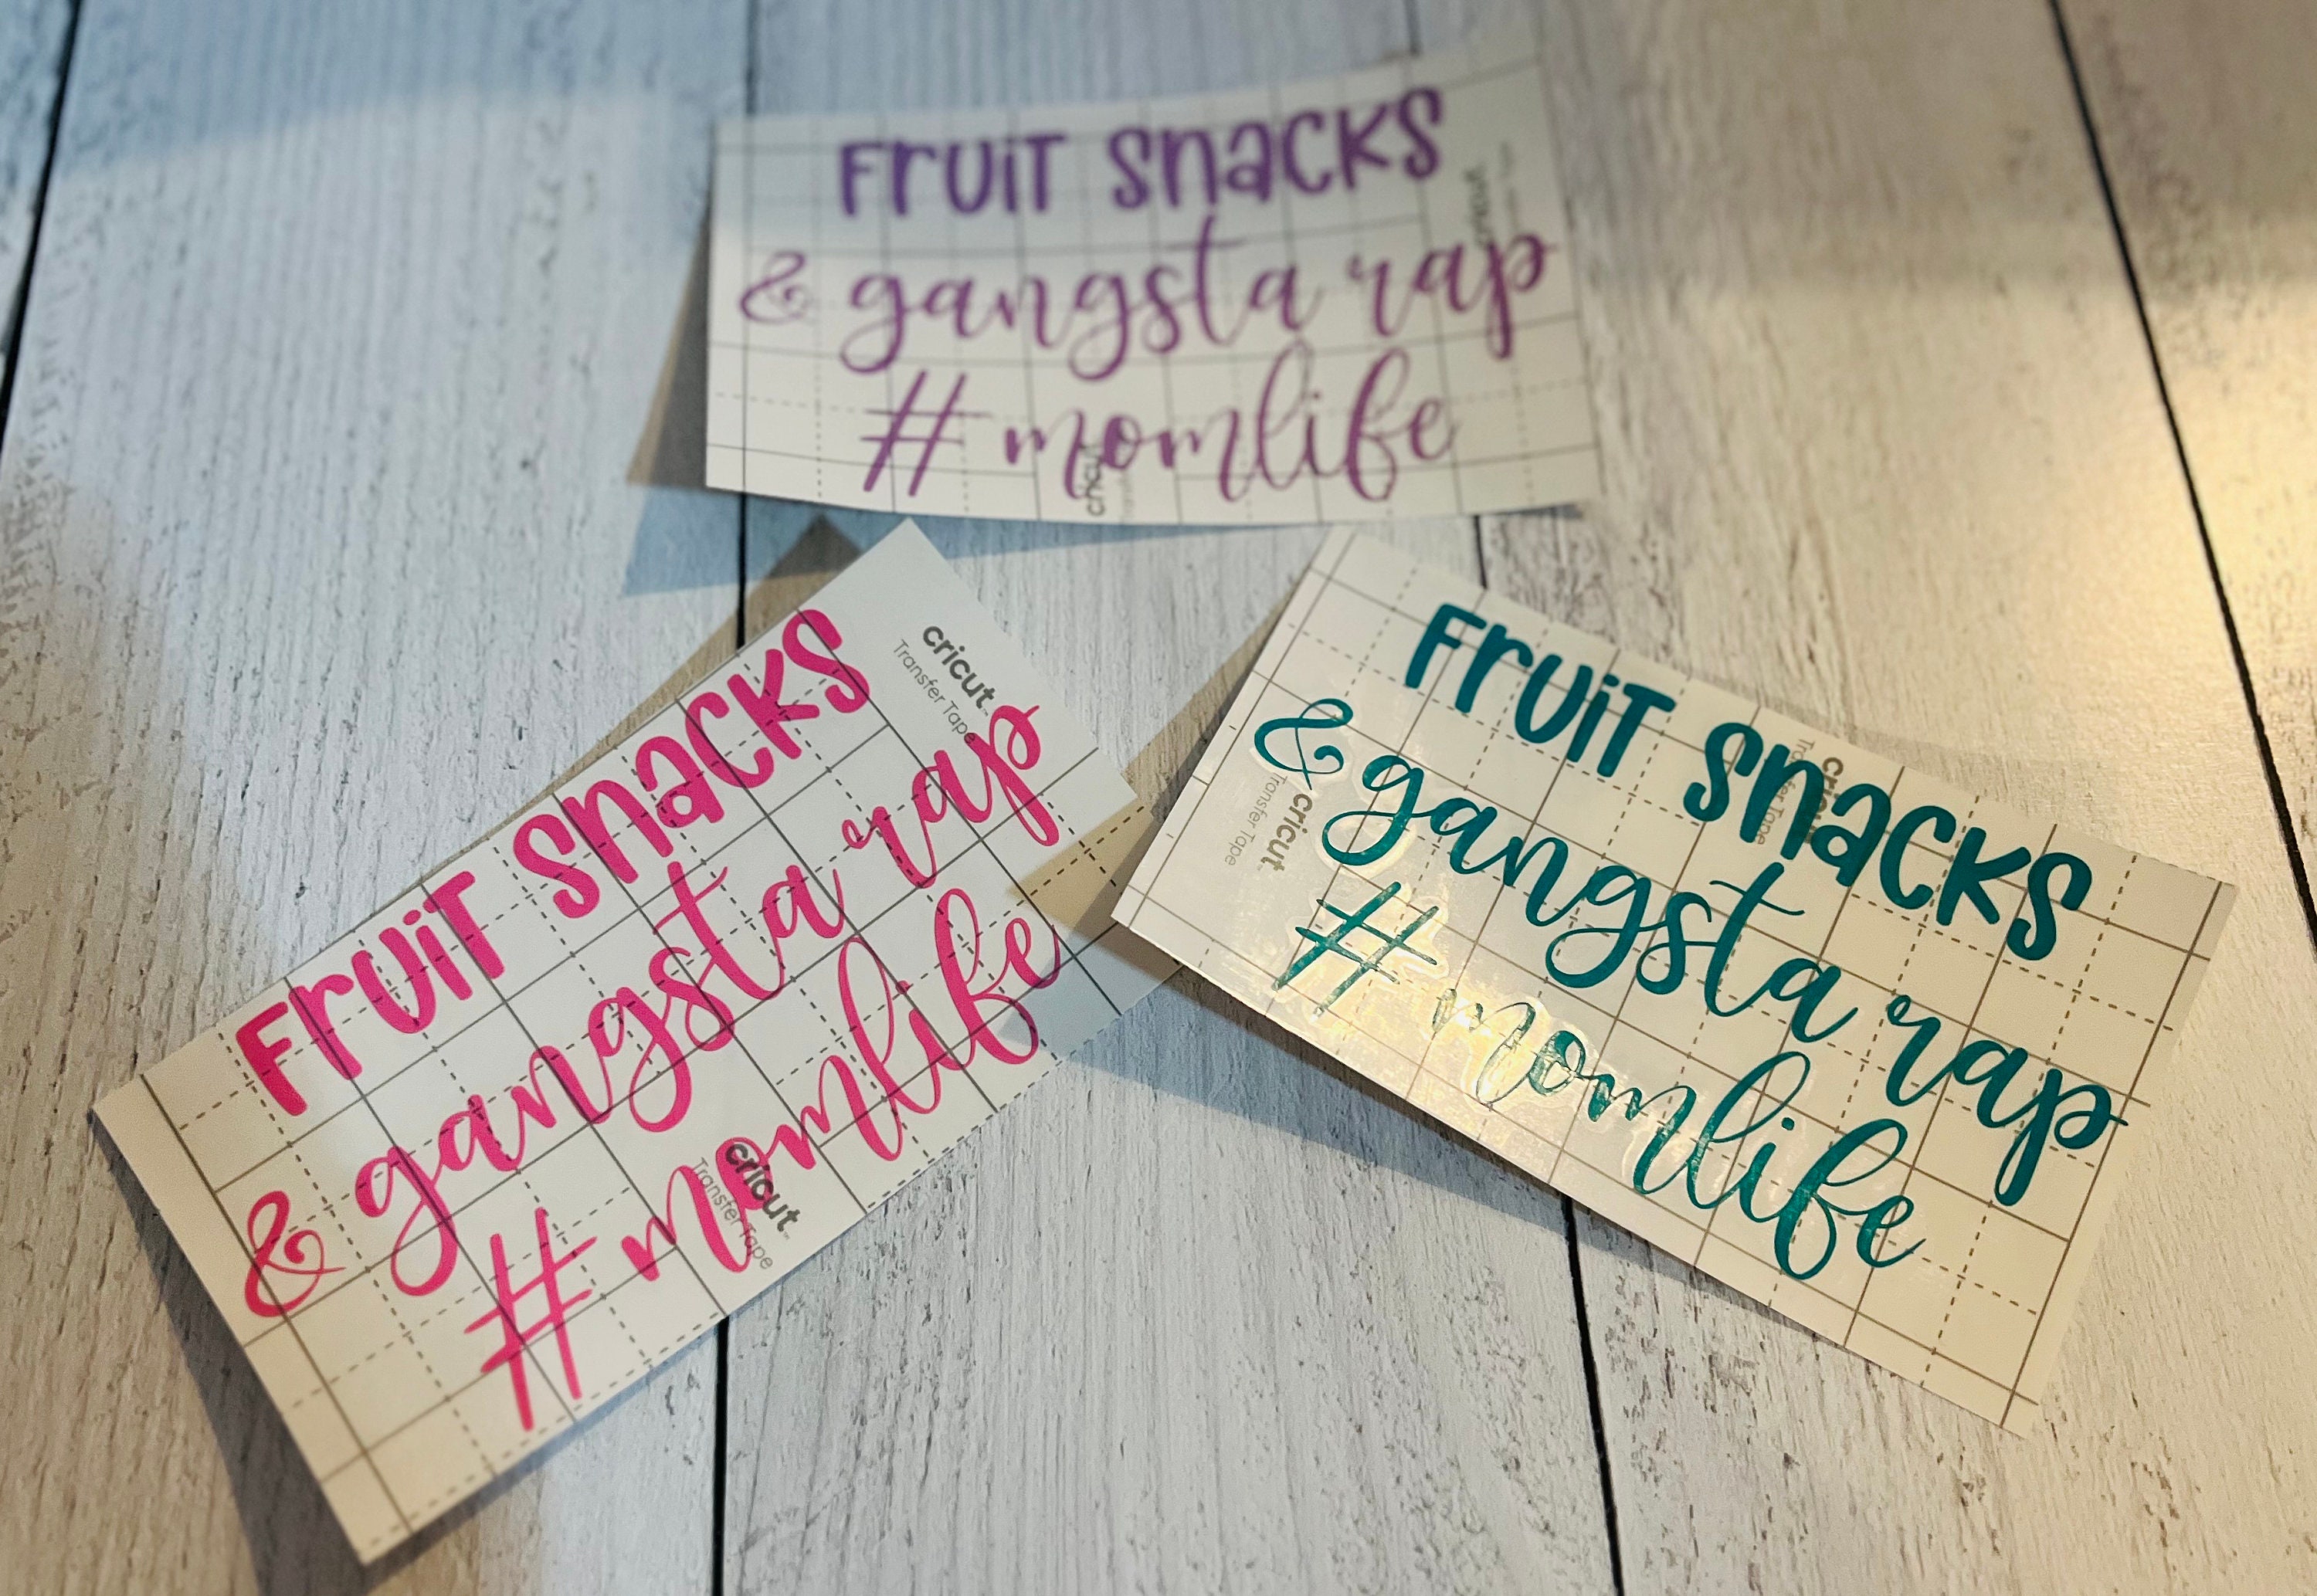 Fruit Snacks
& gangsta rap
#momlife
cricut
cricut
Fruit Snacks
& gangsta rap
#momlife
cricut™
Transfer Tape
cricut™
Transfer Tape
Fruit Snacks
& gangsta rap
#momlife
cricut
Transfer Tape
cricut™
Transfer Tape